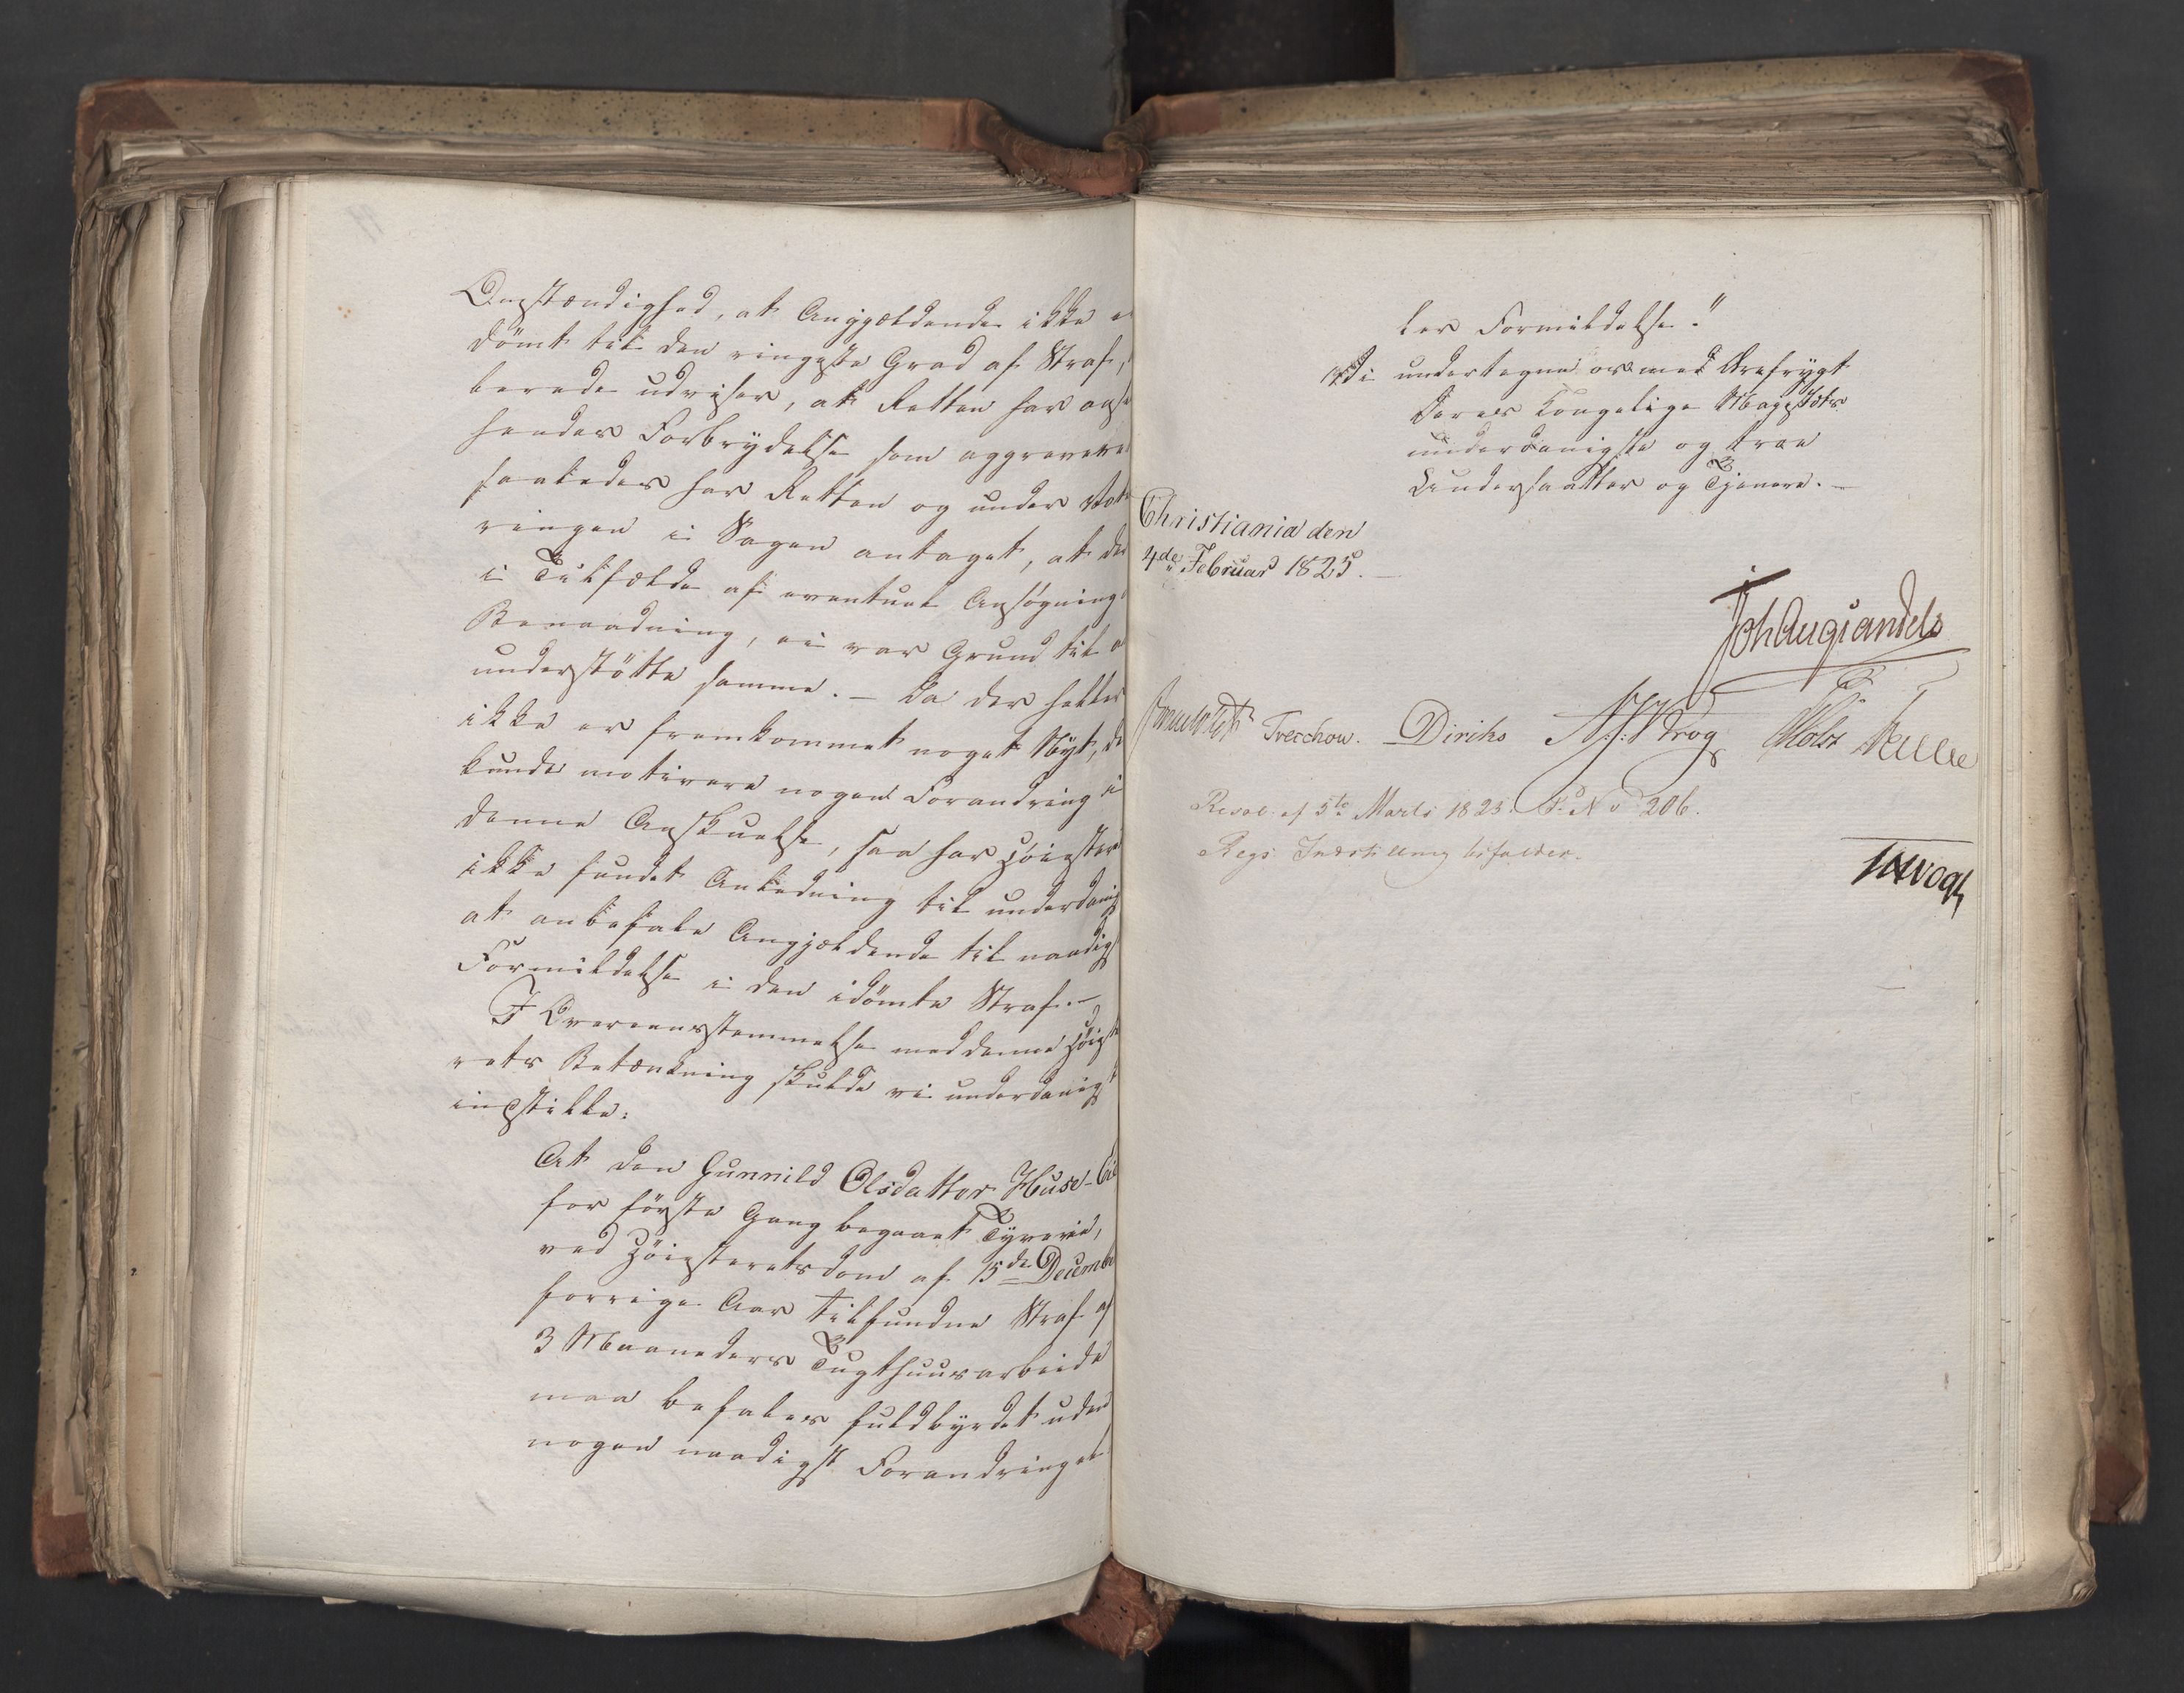 Omstændighed, at Angjældende ikke e
dömt til den ringeste Grad af Straf,
lerede udviser, at Retten har anse
hendes Forbrydelse som aggravere
saaledes har Retten og under Vote
ringen i Sagen antaget, at der
i Tilfælde af eventuel Ansögning
Benaadning, ei var Grund til a
understötte samme. – Da der heller
ikke er fremkommet noget Nyt, de
kunde motivere nogen Forandring i
denne Anskuelse, saa har Höiester
ikke fundet Anledning til underdanig
at anbefale Angjældende til naadig
Formildelse i den idömte Straf. –
I Overeensstemmelse med denne Höieste
rets Betænkning skulde vi underdanigst
indstille:
At den Gunnild Olsdatter Huse-Eie
for förste Gang begaaet Tyverie,
ved Höiesteretsdom af 15de Decembe
forrige Aar tilfundne Straf af
3 Maaneders Tugthuusarbeide
maa befales fuldbyrdet uden
nogen naadigst Forandring el
ler Formildelse."
Vi undertegne os med Ærefrygt
Deres Kongelige Majestæts
underdanigste og troe
Undersaatter og Tjenere. –
Christiania den
4de Februar 1825. –
Joh Aug Sandels
Treschow. Diriks Krog Holst
Resol. af 5te Marts 1825. No 206.
Regj. Indstilling bifaldes.
Vogt